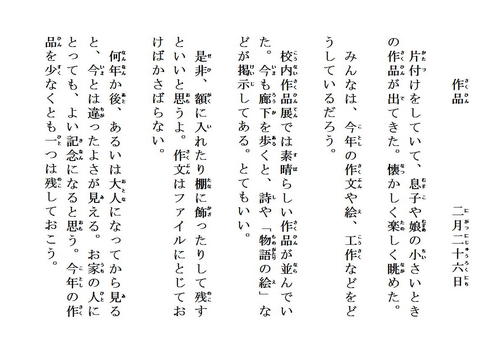 作品
二月二十六日
片付けをしていて、息子や娘の小さいとき
の作品が出てきた。懐かしく楽しく眺めた。
みんなは、今年の作文や絵、工作などをど
うしているだろう。
校内作品展では素晴らしい作品が並んでい
た。今も廊下を歩くと、詩や「物語の絵」な
どが掲示してある。とてもいい。
是非、額に入れたり棚に飾ったりして残す
といいと思うよ。作文はファイルにとじてお
けばかさばらない。
何年か後、あるいは大人になってから見る
と、今とは違ったよさが見える。お家の人に
とっても、よい記念になると思う。今年の作
品を少なくとも一つは残しておこう。